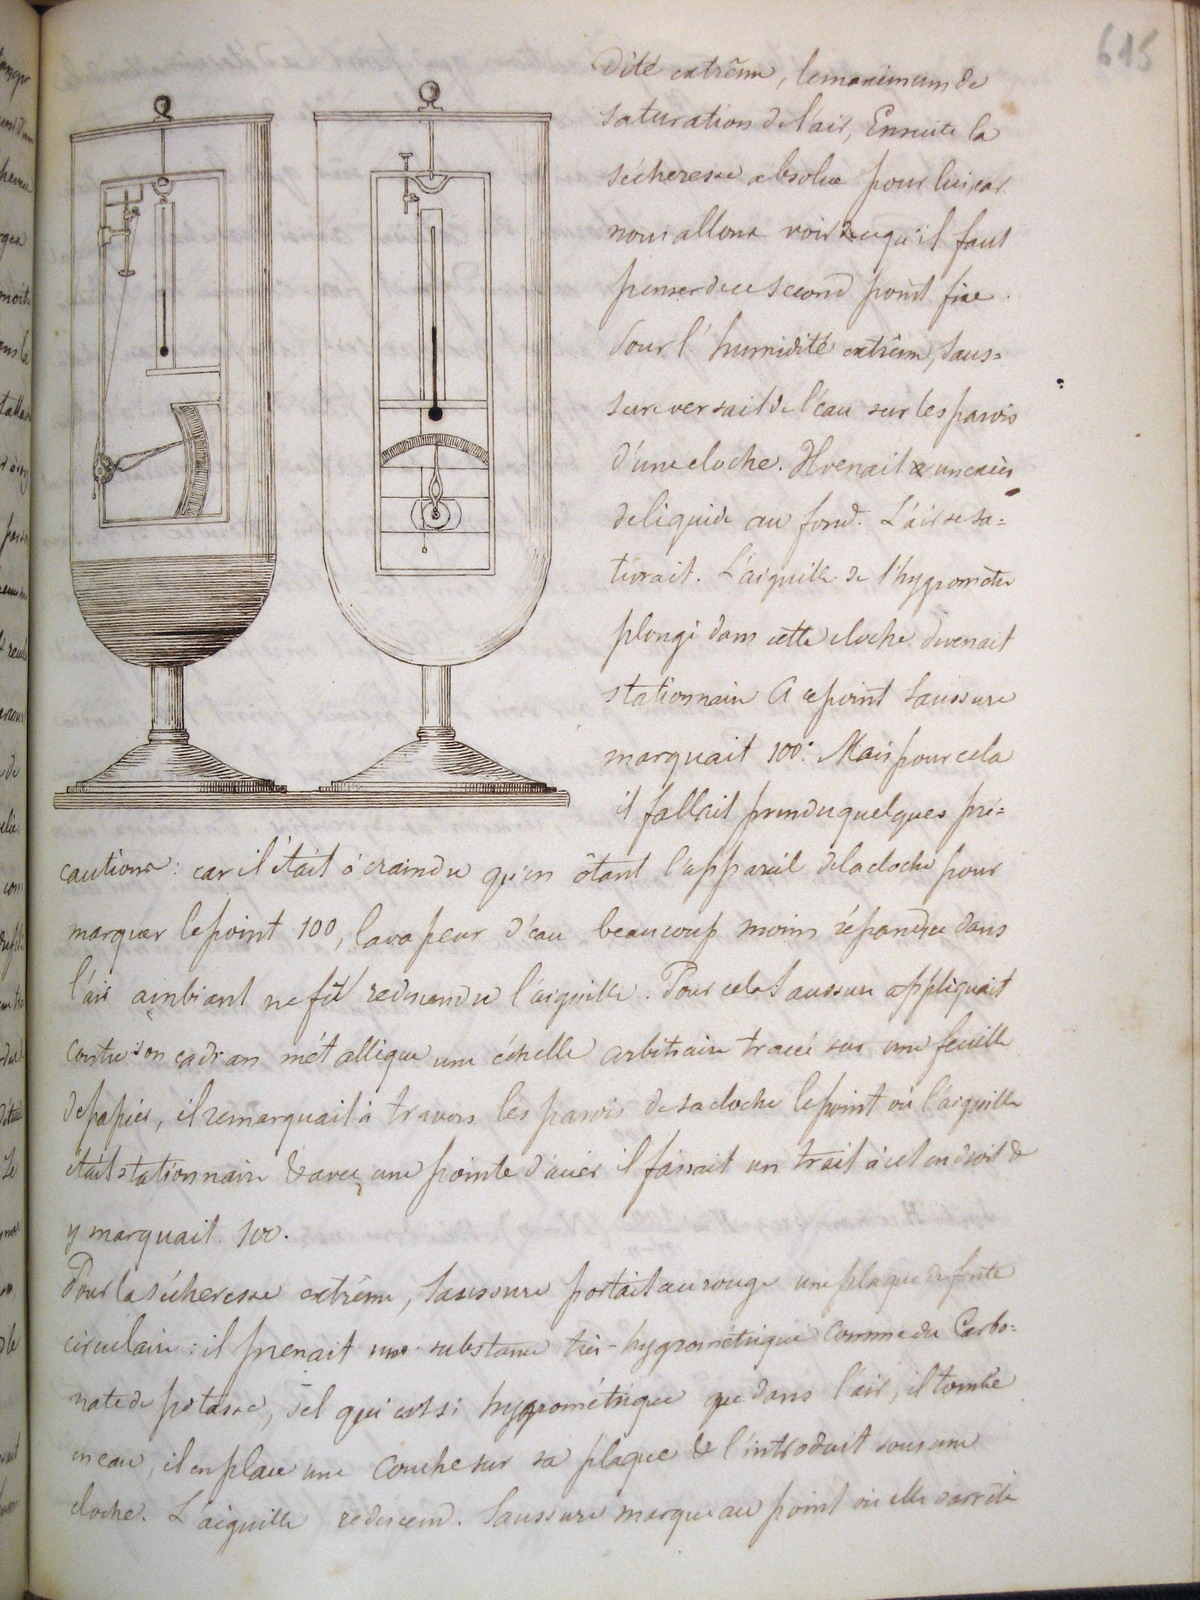 615
dité extrême, le maximum de
saturation de l'air, Ensuite la
sécheresse absolue pour lui, car
nous allons voir ce qu'il faut
penser de ce second point fixe.
Pour l'humidité extrême, Saus=
sure versait de l'eau sur les parois
d'une cloche. Il venait un excès
de liquide au fond. L'air se sa=
turait. L'aiguille de l'hygromètre
plongé dans cette cloche devenait
stationnaire. A ce point Saussure
marquait 100°. Mais pour cela
il fallait prendre quelques pré=
cautions : car il était à craindre qu'en ôtant l'appareil de la cloche pour
marquer le point 100, la vapeur d'eau beaucoup moins répandue dans
l'air ambiant ne fît redescendre l'aiguille. Pour cela Saussure appliquait
contre son cadran métallique une échelle arbitraire tracée sur une feuille
de papier, il remarquait à travers les parois de sa cloche le point où l'aiguille
était stationnaire & avec une pointe d'acier il faisait un trait à cet endroit &
y marquait 100.
Pour la sécheresse extrême, Saussure portait au rouge une plaque de fonte
circulaire : il prenait une substance très-hygrométrique comme du Carbo=
nate de potasse, sel qui est si hygrométrique que dans l'air, il tombe
en eau, il en place une couche sur sa plaque & l'introduit sous une
cloche. L'aiguille redescend. Saussure marque au point où elle s'arrête